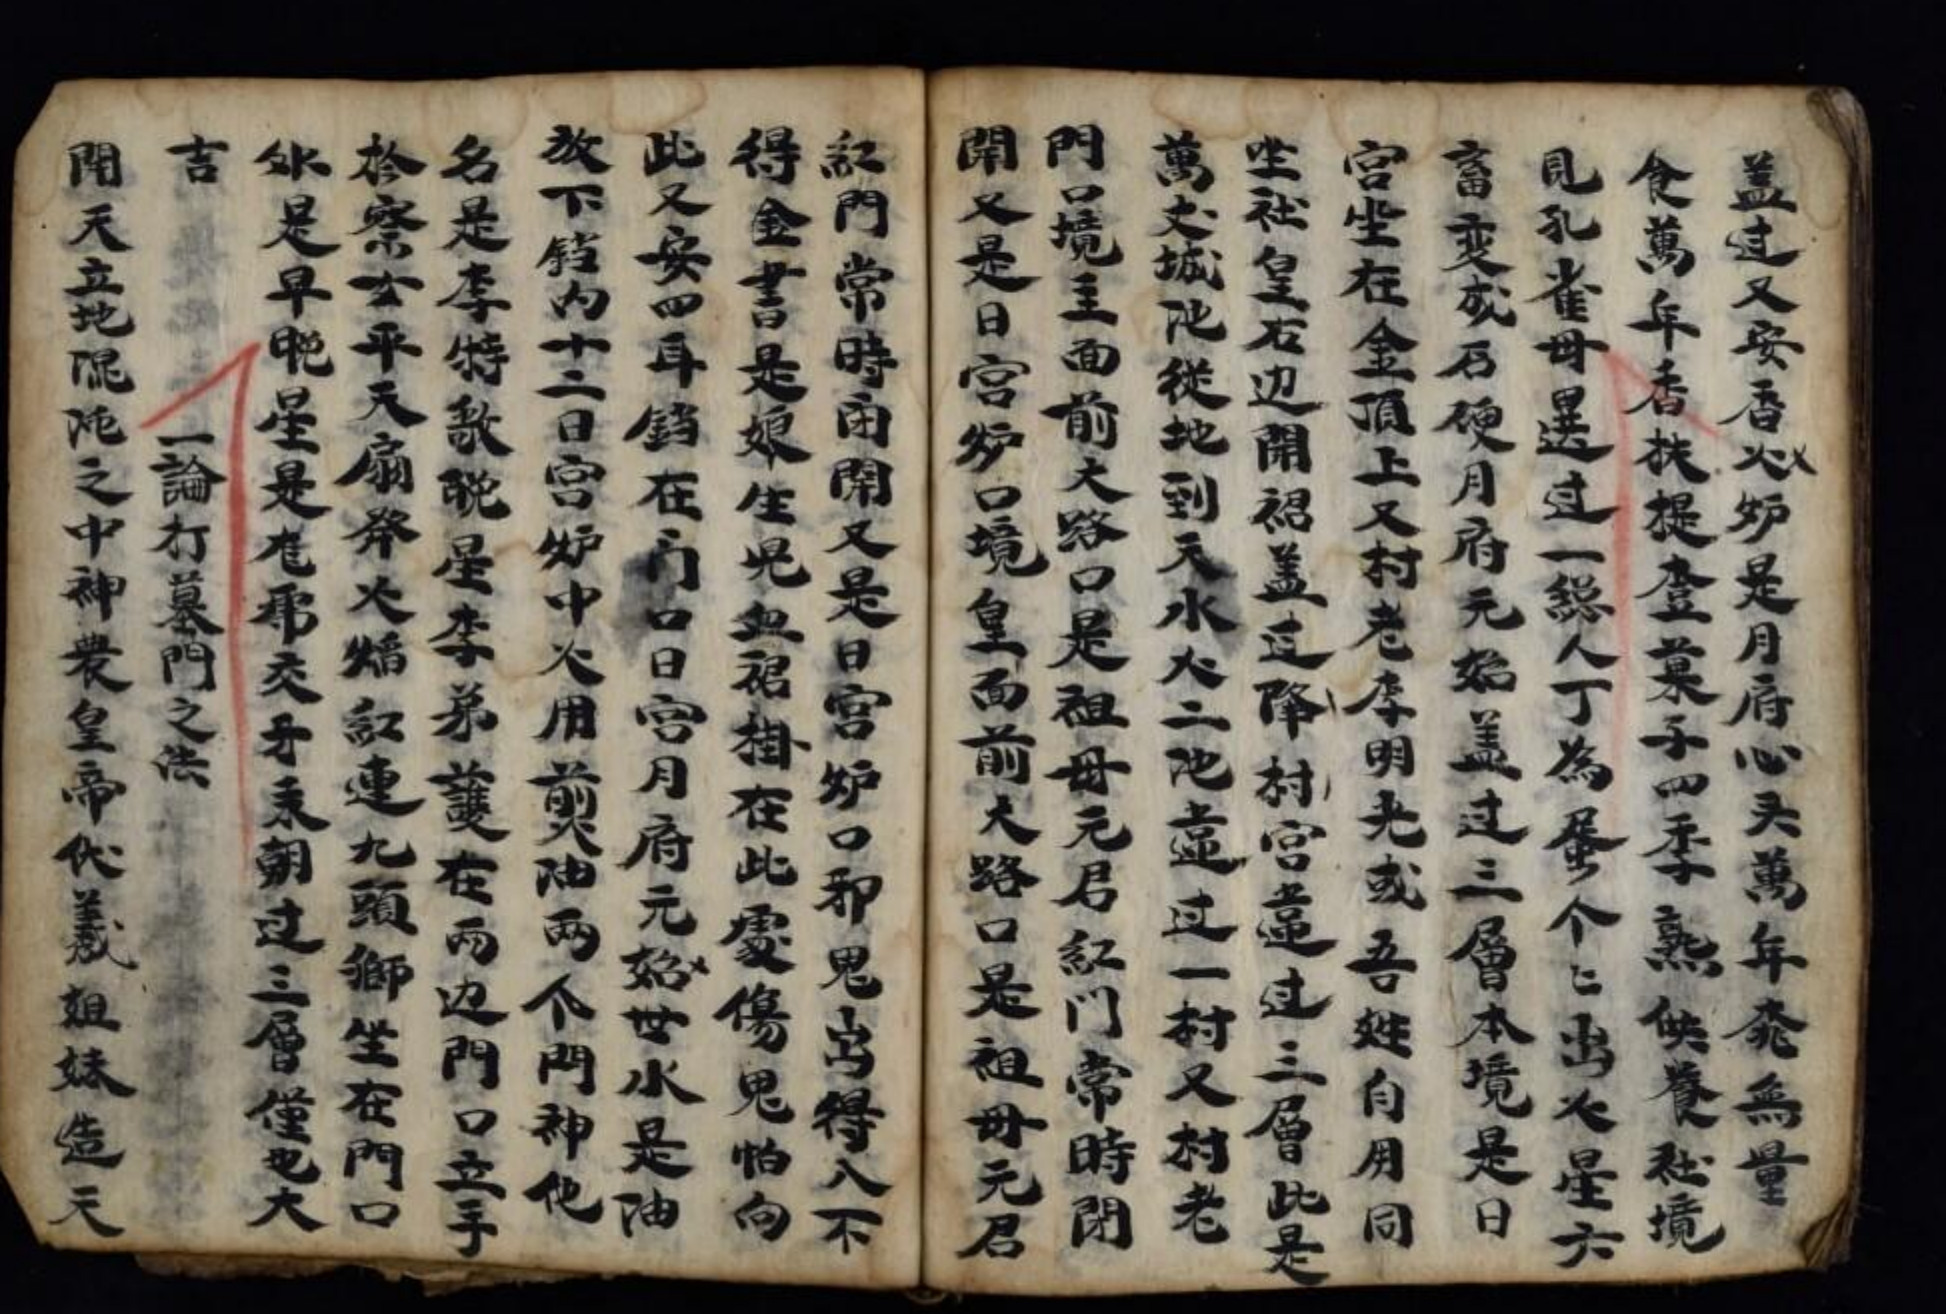 盖过又安香火炉是月府心头萬年發無量
食萬年香扶提查菓子四季熟供養社境
見孔雀毋墨过一総人丁為蛋个々出火星六
畜变成石硬月府元始盖过三層本境是日
宫坐在金頂上又村老李明光或吾姓自用同
坐社皇右边開裙盖过降村宫盖过三層此是
萬丈城池從地到天水火二池盖过一村又村老
門口境主面前大路口是祖毋元君紅門常時閉
開又是日宫炉口境皇面前大路口是祖毋元君
紅門常時闭開又是日宫炉口邪鬼出得入不
得金書是娘生児血裙掛在此處傷鬼怕向
此又安四耳鐺在门口日宫月府元始世水是油
放下鐺内十二日宫炉中火用煎油两个門神他
名是李特歌晩星李弟護在两边門口立手
於察玄平天扇發火焰紅連九頭獅坐在門口
外是早晩星是龙帶交牙来朝过三層僅也大
吉
一論打墓門之法
開天立地混沌之中神農皇帝伏義姐妹造天